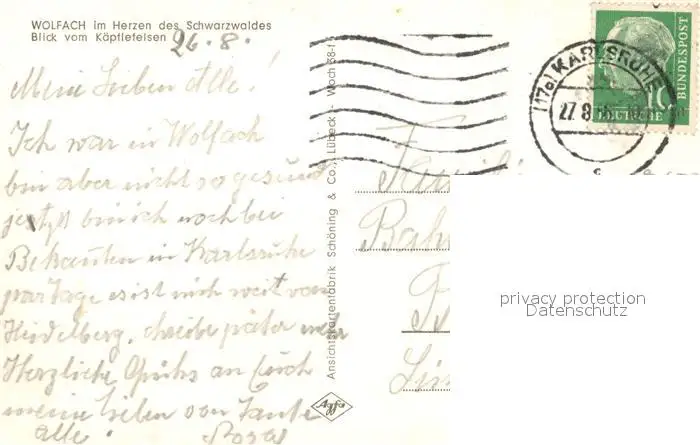 WOLFACH im Herzen des Schwarzwaldes
Blick vom Käpflefelsen
26.8.
Meine Lieben Alle!
Ich war in Wolfach
bin aber nicht so gesund
jetzt bin ich noch bei
Bekannten in Karlsruhe
paar Tage es ist nich weit von
Heidelberg, schreibe später mehr
Herzliche Grüße an Euch
meine Lieben von Tante
alle! Rosa
Ansichtskartenfabrik Schöning & Co., Lübeck - Wolch 58-f
Agfa
(17a) KARLSRUHE
27.8.
c
10
DEUTSCHE
BUNDESPOST
Famili
Bah
Lin
privacy protection
Datenschutz